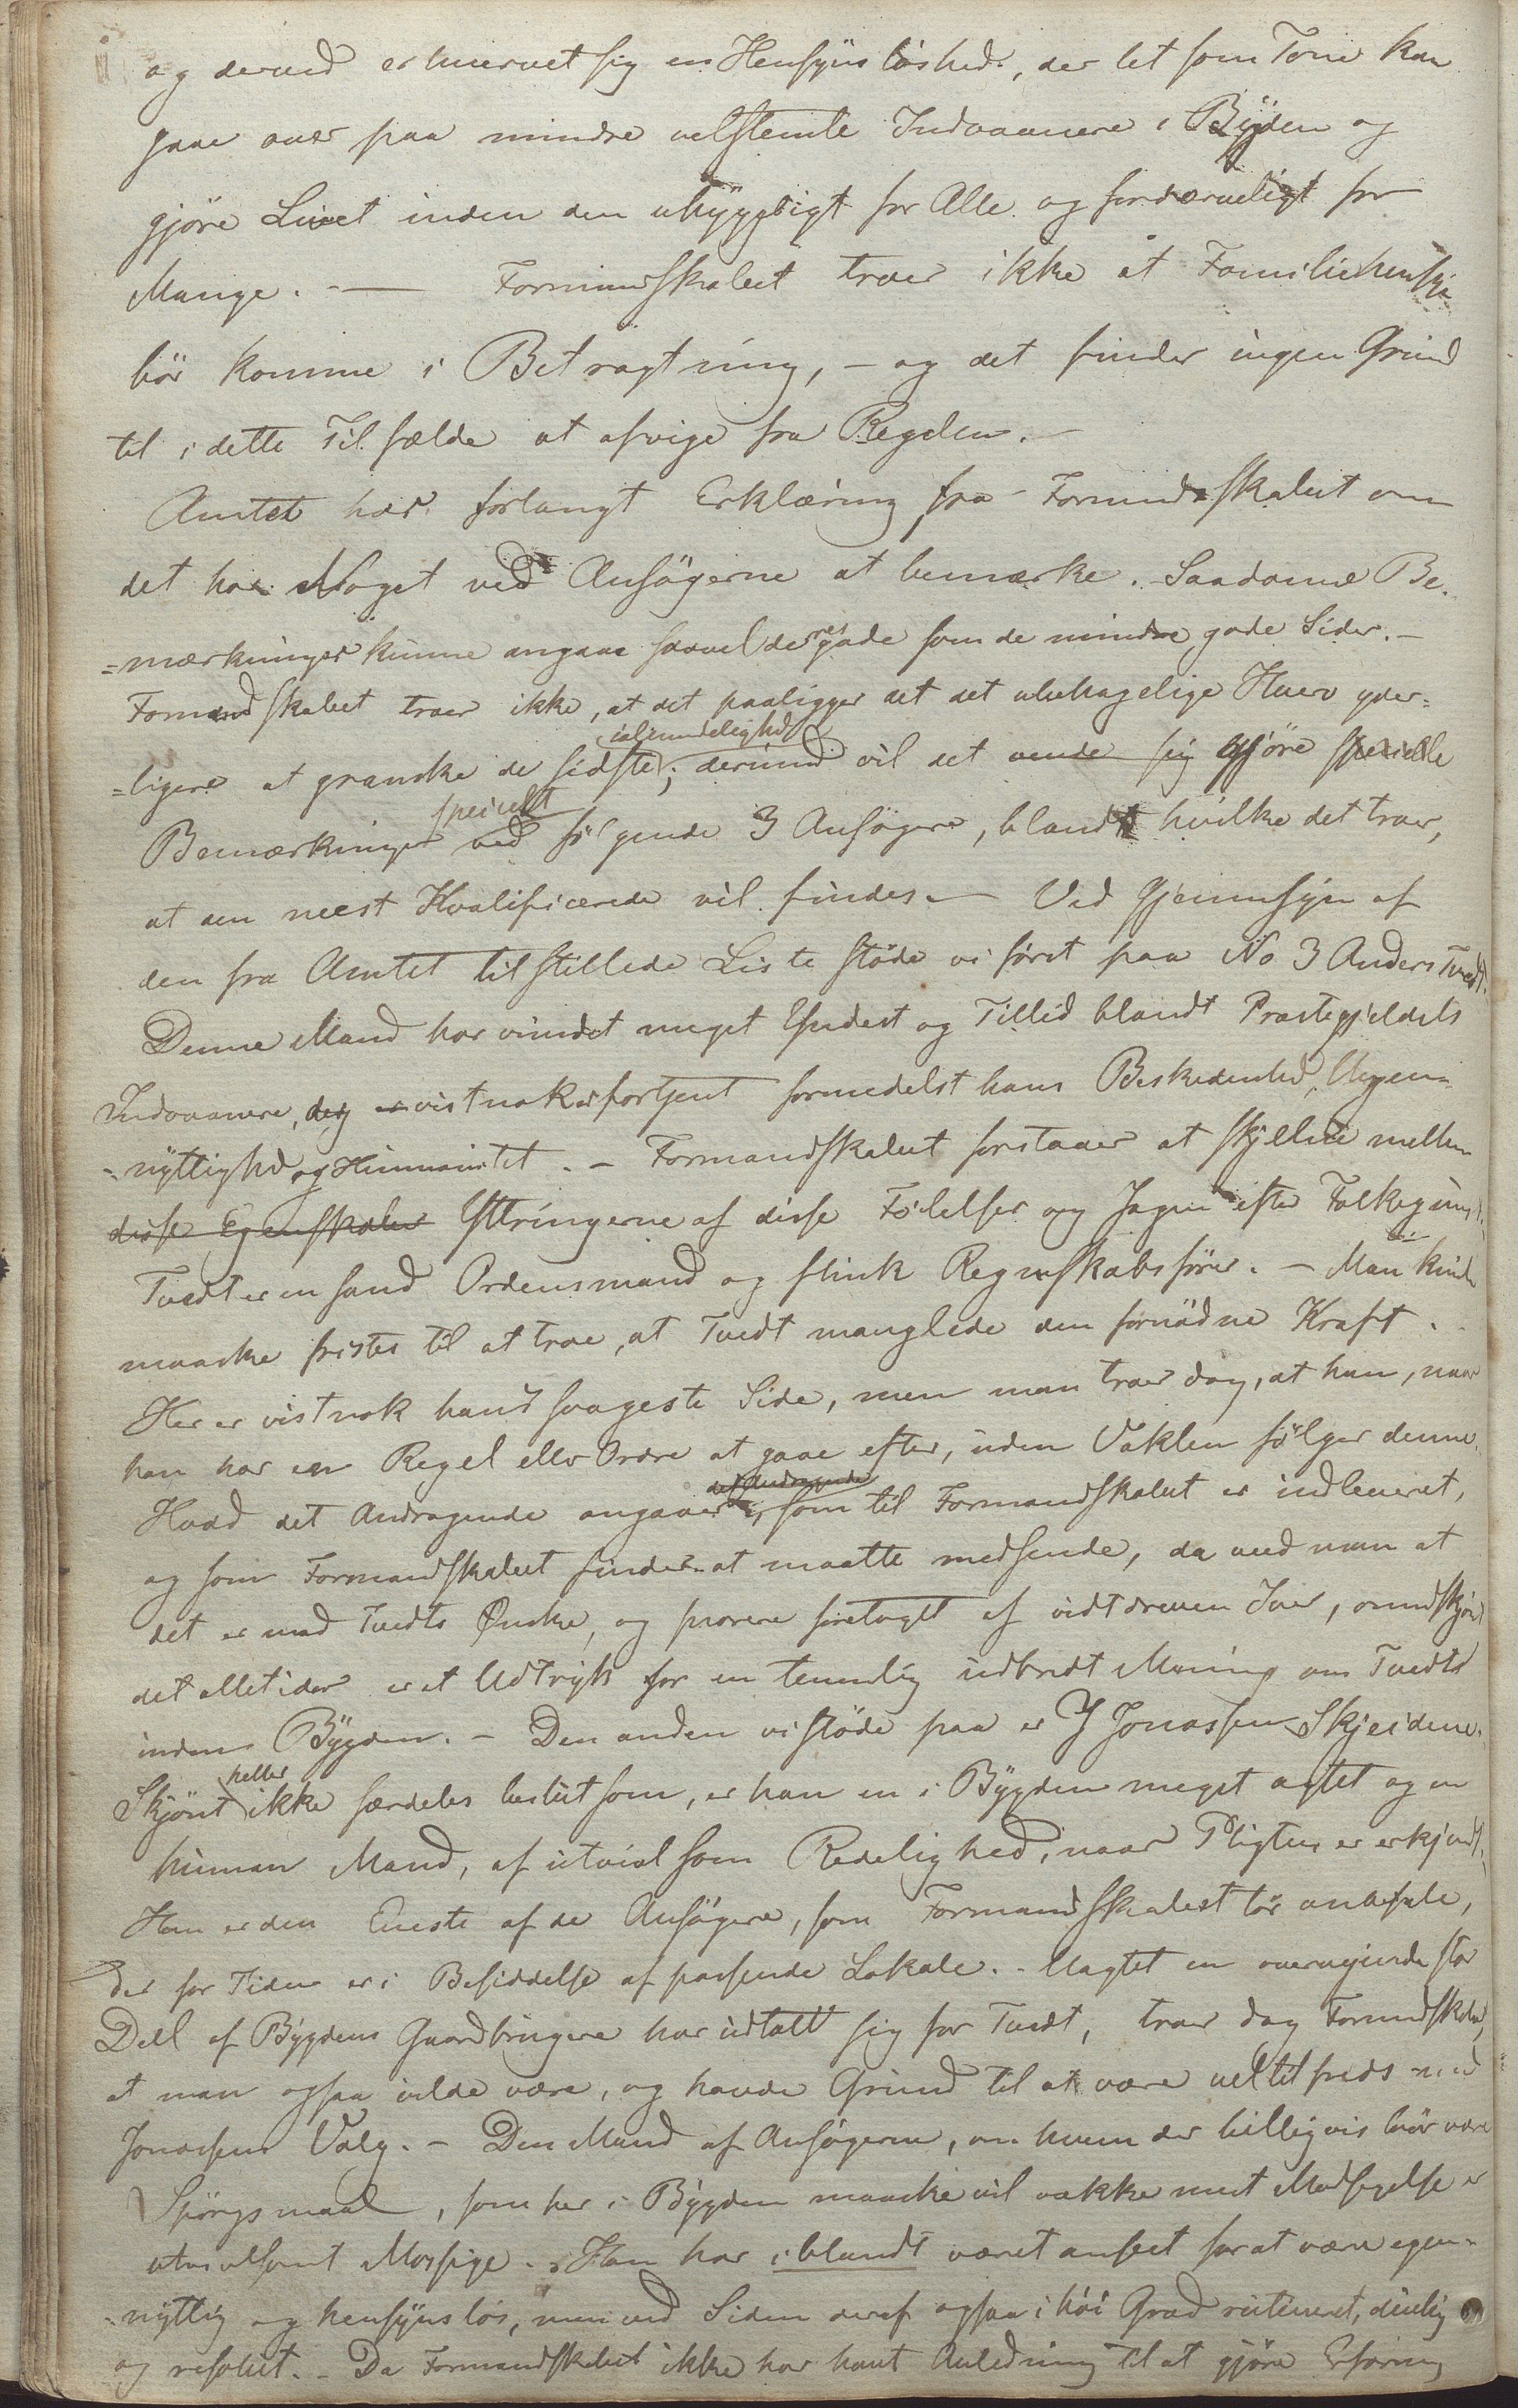 og derved erhvervet sig en Hensÿnsløshed, der let som Tone kan
gaae over paa mindre velstemte Indvaanere i Bÿgden og
gjöre Livet inden den uhÿggeligt for Alle og fordærveligt for
Mange. — Formandskabet troer ikke at Familiehensyn
bör komme i Betragtning, – og det finder ingen Grund
til i dette Tilfælde at afvige fra Regelen. –
Amtet har forlangt Erklæring fra Formandskabet om
det har Noget ved Ansögerne at bemærke. Saadanne Be-
=mærkninger kunne angaae saavel deres gode som de mindre gode Sider. –
Formandskabet troer ikke, at det paaligger det det ubehagelige Hverv yder=
=ligere at granske de sidste ialmindelighed; derimod vil det vende sig gjöre specielle
Bemærkninger specielt ved fölgende 3 Ansögere, blandt hvilke det troer,
at den meest Kvalificerede vil findes. – Ved Gjennemsÿn af
den fra Amtet tilstillede Liste stöde vi först paa No 3 Anders Tvedt.
Denne Mand har vundet meget Yndest og Tillid blandt Præstegjeldets
Indvaanere, vistnok fortjent formedelst hans Beskedenhed, Uegen=
=nÿttighed og Humanitet. – Formandskabet forstaaer at skjelne mellem
disse Egenskaber Yttringerne af disse Fölelser og Jagen efter Folkegunst.
Tvedt er en sand Ordensmand og flink Regnskabsförer. – Man kunde
maaske fristes til at troe, at Tvedt manglede den fornödne Kraft.
Her er vistnok hans svageste Side, men man troer dog, at han, naar
han har en Regel eller Ordre at gaae efter, uden Vaklen fölger denne.
Hvad det Andragende angaaer det Andragende, som til Formandskabet er indleveret,
og som Formandskabet finder at maatte medsende, da veed man at
det er mod Tvedts Ønske, og foretaget af vidtdreven Iver, omendskjönt
det alletider er et Udtrÿk for en temmelig udbredt Mening om Tvedt
inden Bÿgden. – Den anden vi stöde paa er J Jonassen Skjeidene.
Skjönt heller ikke særdeles besluttsom, er han en i Bÿgden meget agtet og en
human Mand, af utvivlsom Redelighed, naar Pligten er erkjendt.
Han er den Eneste af de Ansögere, som Formandskabet tör anbefale,
der for Tiden er i Besiddelse af passende Lokale. – Uagtet en overveiende stor
Deel af Bÿgdens Gaardbrugere har udtalt sig for Tvedt, troer dog Formandskabet,
at man ogsaa vilde være, og havde Grund til at være veltilfreds med
Jonassens Valg. – Den Mand af Ansögerne, om hvem der billigvis bör være
Spörgsmaal, som her i Bÿgden maaske vil vække mest Modsigelse er
utvivlsomt Mossige. Han har iblandt været anseet for at være egen=
=nÿttig og hensÿnslös, men ved Siden deraf ogsaa i höi Grad rutineret, dÿgtig
og resolut. – Da Formandskabet ikke har havt Anledning til at gjöre Erfaring